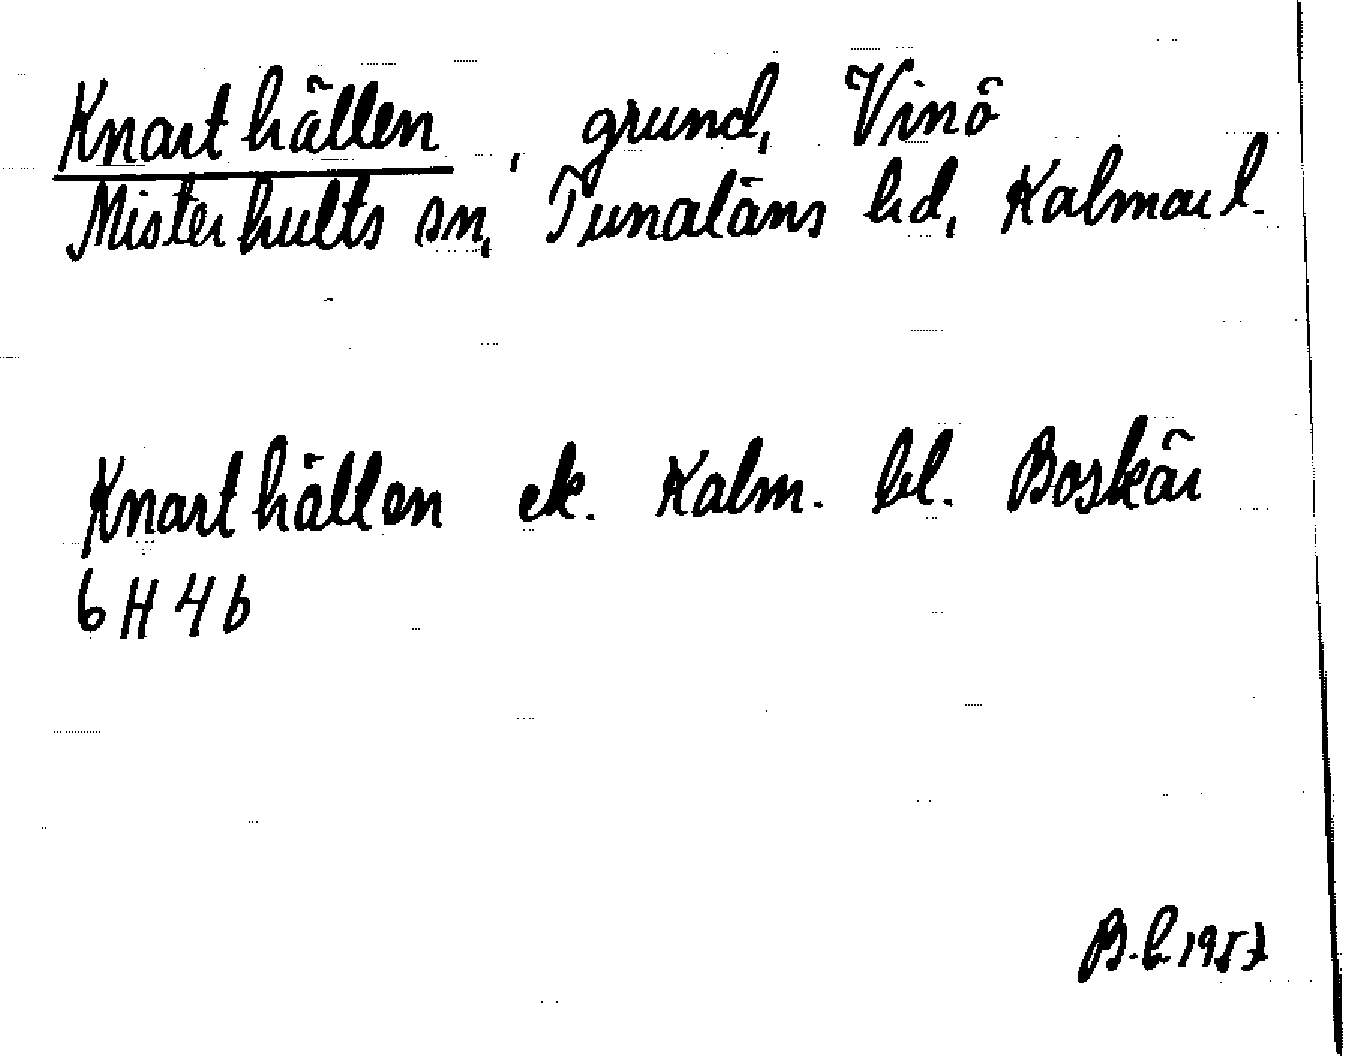 Knarthällen, grund, Vinö
Misterhults sn, Tunaläns hd, Kalmar l.
Knarthällen ek. Kalm. bl. Boskär
6H4b